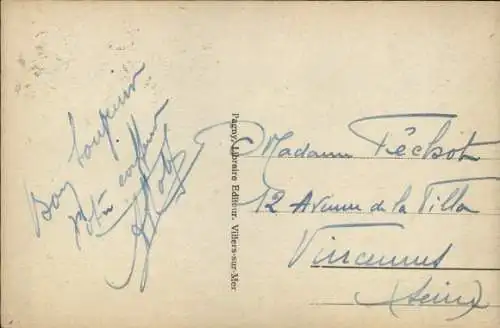 Bon toujour
votre coiffeur
Pagny, Libraire Editeur, Villers-sur-Mer
Madame Féchot
12 Avenue de la Tilla
Vincennes
(Seine)